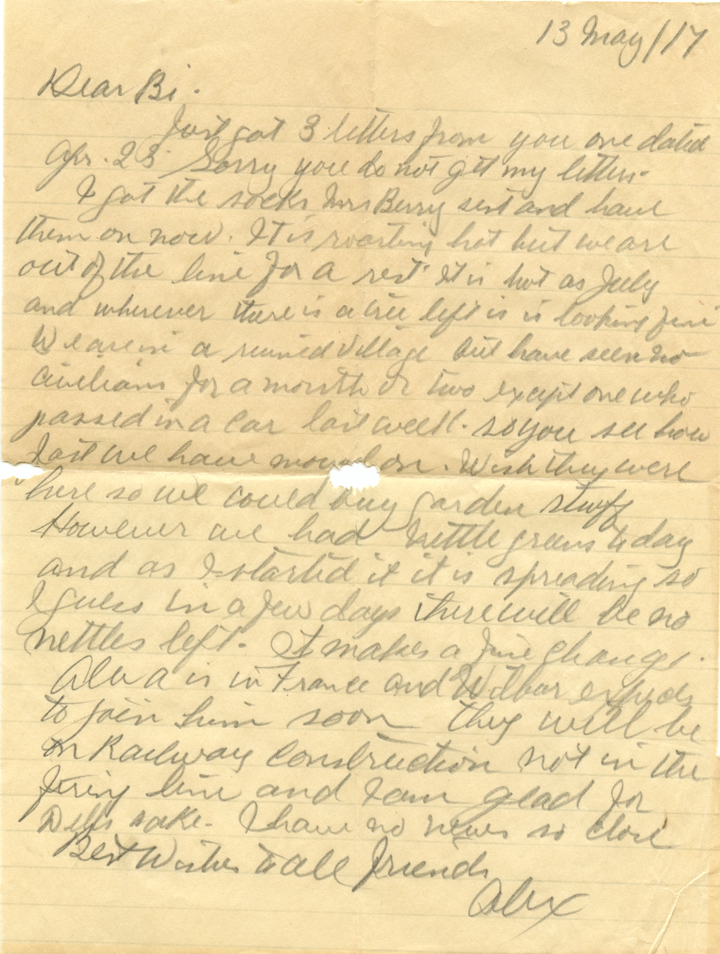 13 May/17
Dear Bi.
Just got 3 letters from you one dated
Apr. 23. Sorry you do not get my letters.
I got the socks Mrs Berry sent and have
them on now. It is roasting hot but we are
out of the line for a rest. It is hot as July
and wherever there is a tree left is is looking fine
We are in a ruined village but have seen no
civilians for a month or two except one who
passed in a car last week. so you see how
fast we have moved on. Wish they were
here so we could buy garden stuff
However we had nettle greens today
and as I started it it is spreading so
I guess in a few days there will be no
nettles left. It makes a fine change.
Alva is in France and Wilbur expects
to join him soon they will be
on Railway Construction not in the
firing line and I am glad for
sake. I have no news so close
Best Wishes to all friends
Alex